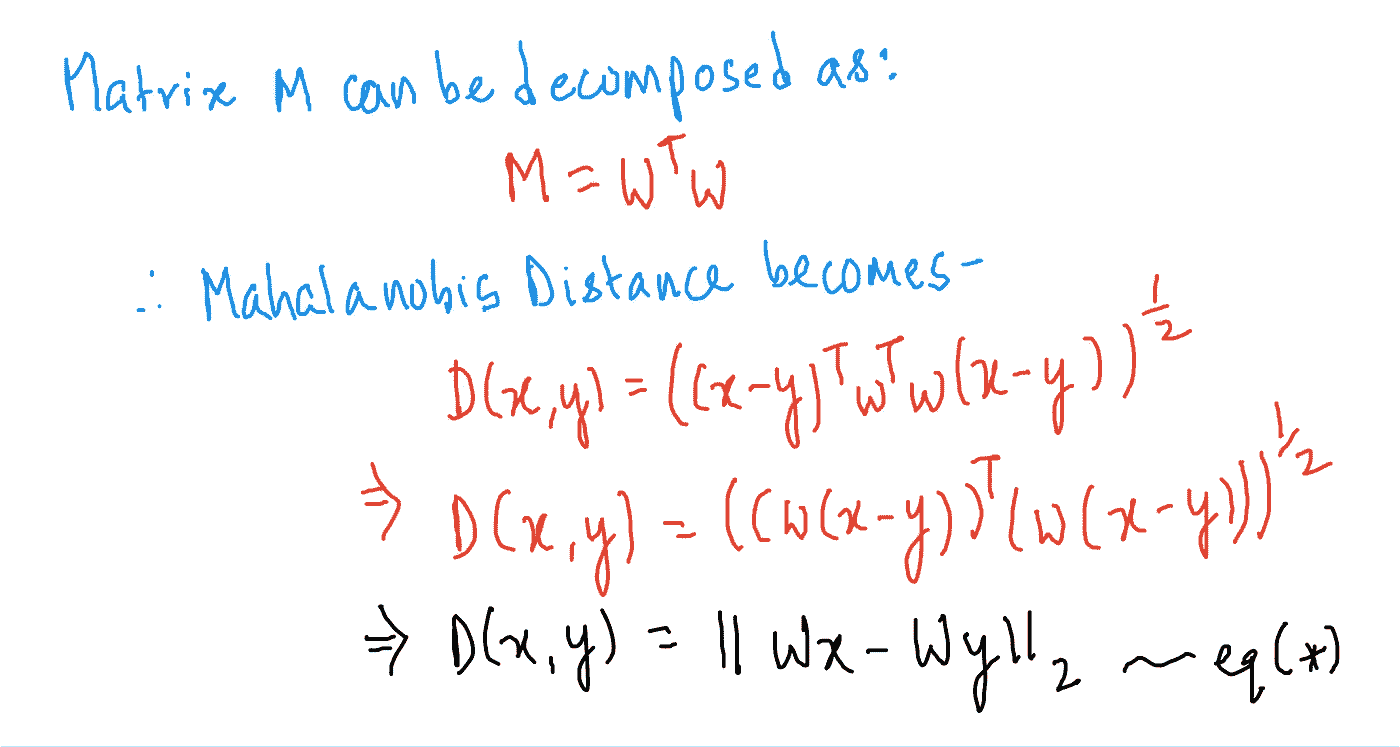 Matrix M can be decomposed as:
M = WᵀW
∴ Mahalanobis Distance becomes-
D(x,y) = ((x-y)ᵀWᵀW(x-y))^½
⇒ D(x,y) = ((W(x-y))ᵀ(W(x-y)))^½
⇒ D(x,y) = ||Wx-Wy||₂ ~ eq(*)